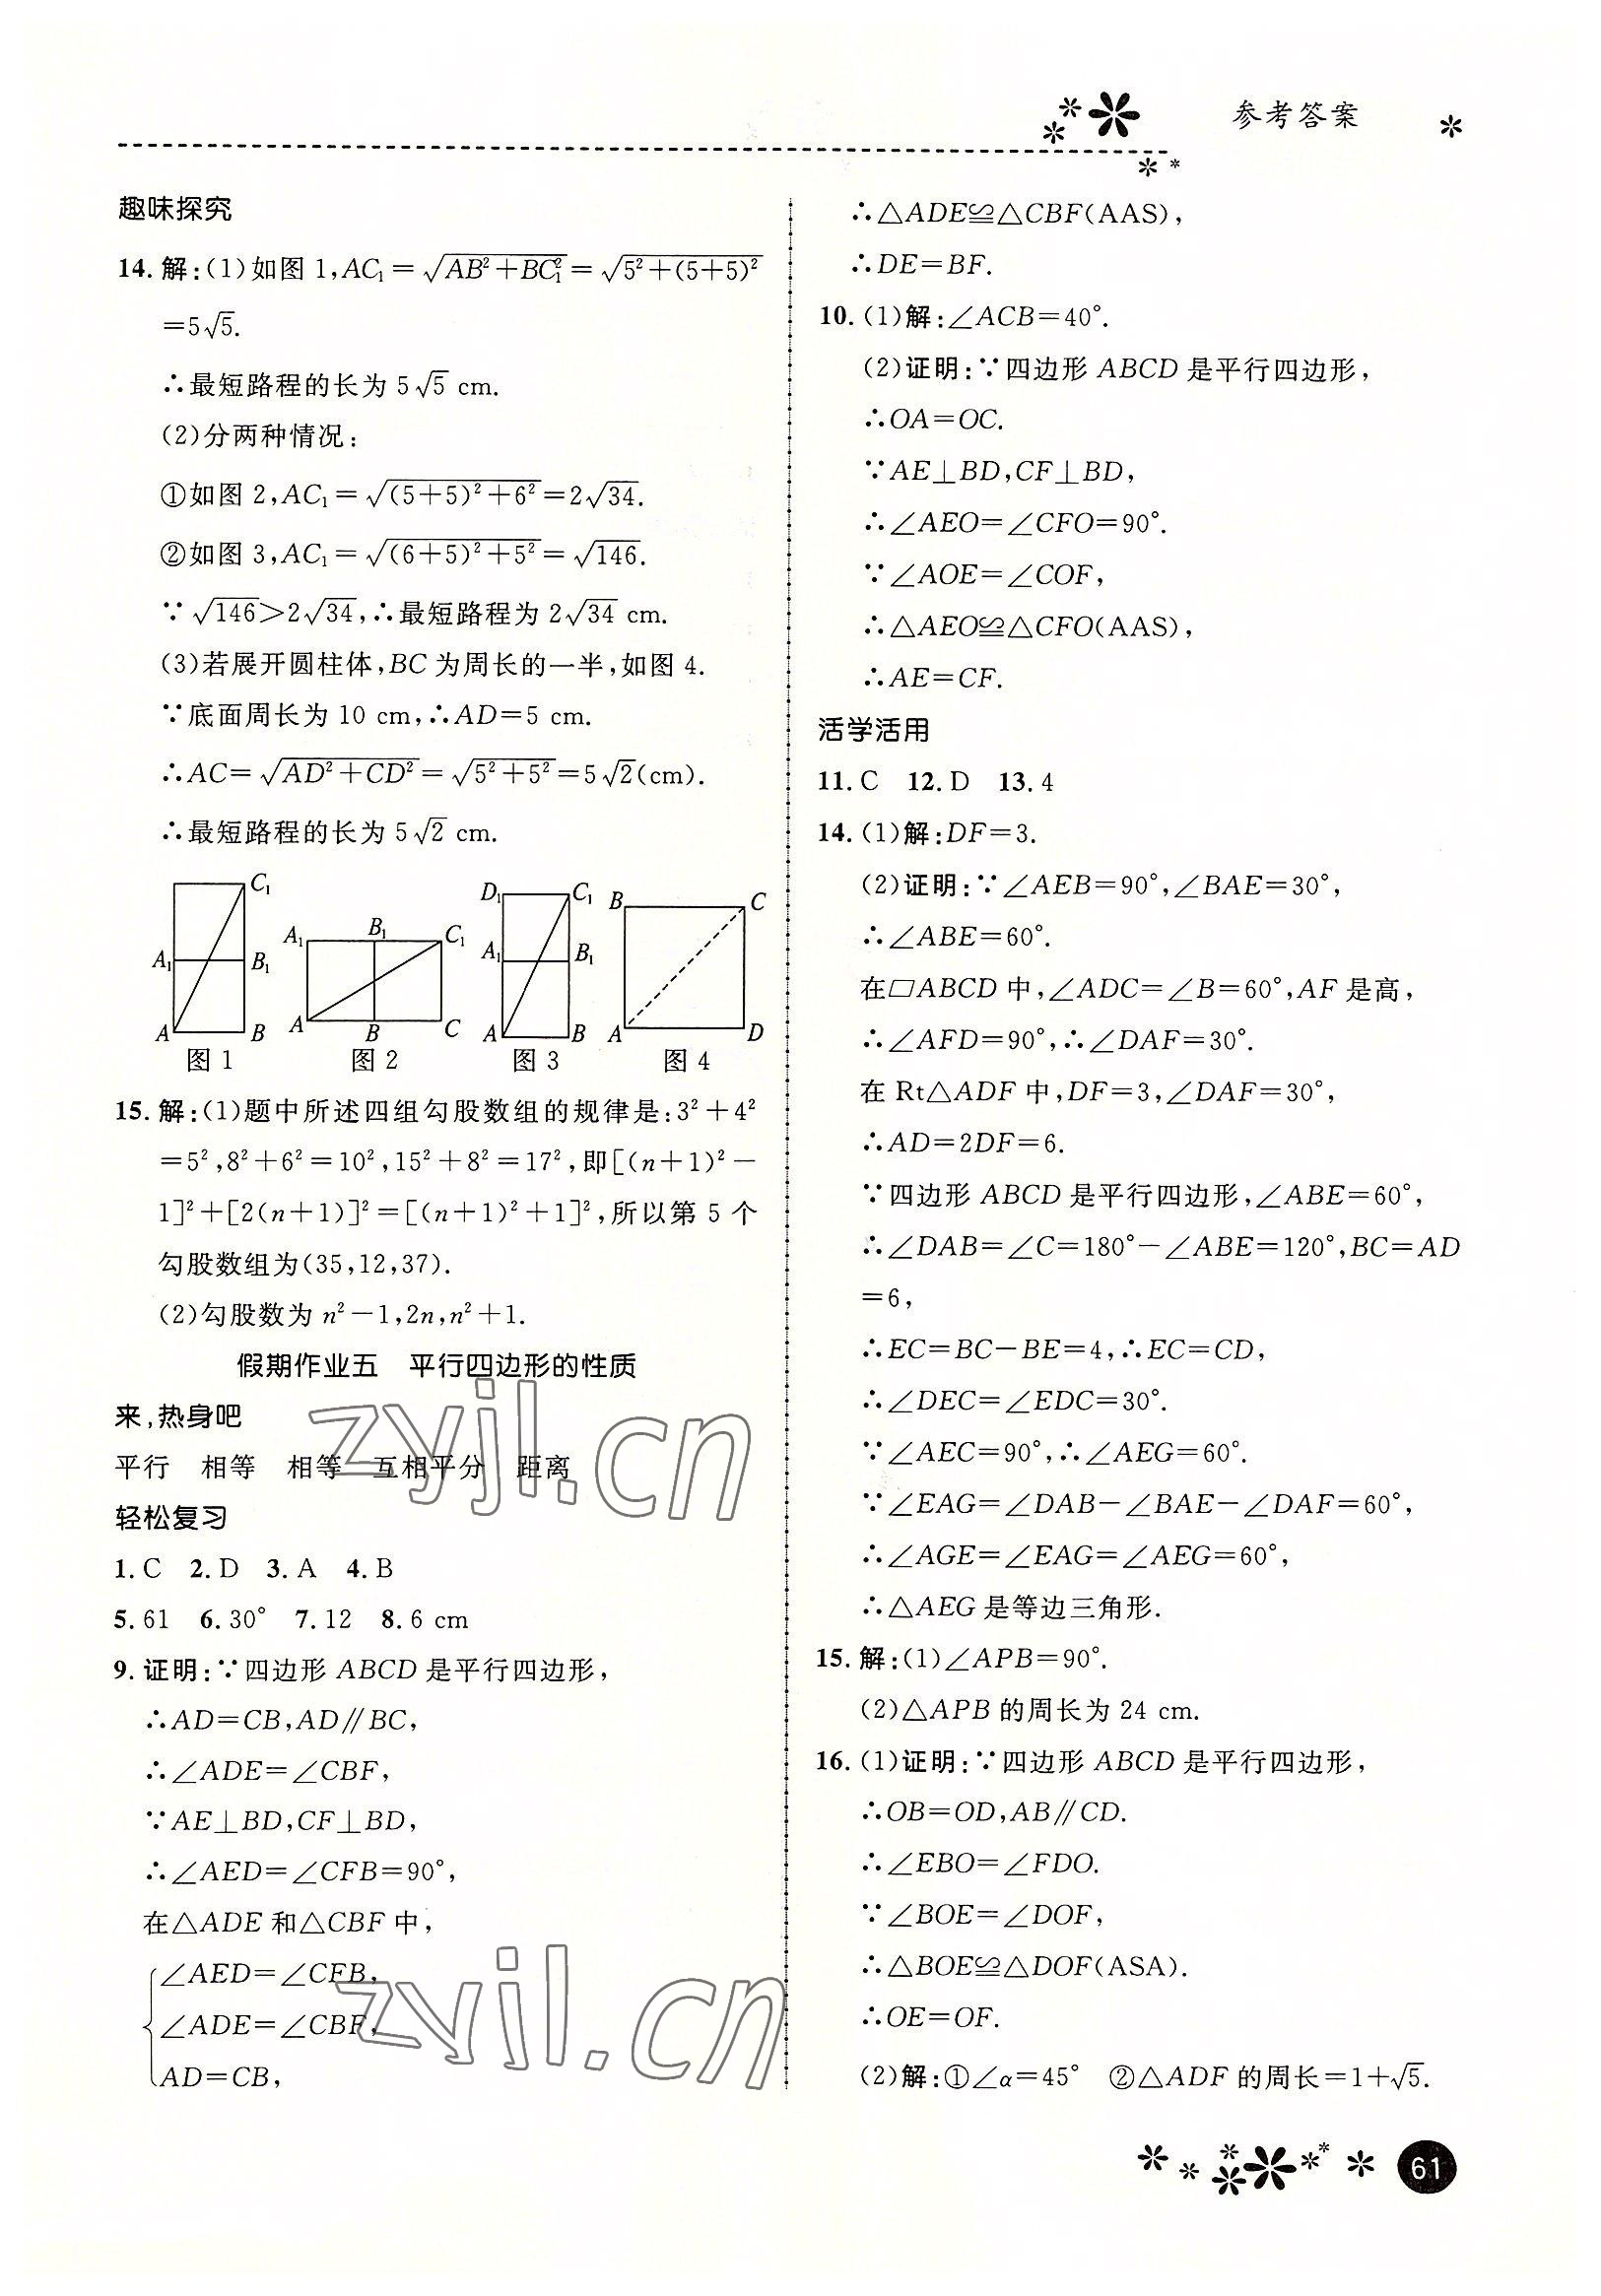 参考答案
趣味探究
14. 解:(1)如图 1,AC₁=√(AB²+BC₁²)=√(5²+(5+5)²)
=5√5.
∴最短路程的长为 5√5 cm.
(2)分两种情况:
①如图 2,AC₁=√((5+5)²+6²)=2√34.
②如图 3,AC₁=√((6+5)²+5²)=√146.
∵√146>2√34,∴最短路程为 2√34 cm.
(3)若展开圆柱体,BC 为周长的一半,如图 4.
∵底面周长为 10 cm,∴AD=5 cm.
∴AC=√(AD²+CD²)=√(5²+5²)=5√2(cm).
∴最短路程的长为 5√2 cm.
C₁ A₁ B₁ A B
A₁ B₁ C₁ A B C
D₁ C₁ A₁ B₁ A B
B C A D
图 1 图 2 图 3 图 4
15. 解:(1)题中所述四组勾股数组的规律是:3²+4²
=5²,8²+6²=10²,15²+8²=17²,即[(n+1)²-
1]²+[2(n+1)]²=[(n+1)²+1]²,所以第 5 个
勾股数组为(35,12,37).
(2)勾股数为 n²-1,2n,n²+1.
假期作业五 平行四边形的性质
来,热身吧
平行 相等 相等 互相平分 距离
轻松复习
1. C 2. D 3. A 4. B
5. 61 6. 30° 7. 12 8. 6 cm
9. 证明:∵四边形 ABCD 是平行四边形,
∴AD=CB,AD∥BC,
∴∠ADE=∠CBF,
∵AE⊥BD,CF⊥BD,
∴∠AED=∠CFB=90°,
在△ADE 和△CBF 中,
∠AED=∠CFB,
∠ADE=∠CBF,
AD=CB,
∴△ADE≌△CBF(AAS),
∴DE=BF.
10. (1)解:∠ACB=40°.
(2)证明:∵四边形 ABCD 是平行四边形,
∴OA=OC.
∵AE⊥BD,CF⊥BD,
∴∠AEO=∠CFO=90°.
∵∠AOE=∠COF,
∴△AEO≌△CFO(AAS),
∴AE=CF.
活学活用
11. C 12. D 13. 4
14. (1)解:DF=3.
(2)证明:∵∠AEB=90°,∠BAE=30°,
∴∠ABE=60°.
在▱ABCD 中,∠ADC=∠B=60°,AF 是高,
∴∠AFD=90°,∴∠DAF=30°.
在 Rt△ADF 中,DF=3,∠DAF=30°,
∴AD=2DF=6.
∵四边形 ABCD 是平行四边形,∠ABE=60°,
∴∠DAB=∠C=180°-∠ABE=120°,BC=AD
=6,
∴EC=BC-BE=4,∴EC=CD,
∴∠DEC=∠EDC=30°.
∵∠AEC=90°,∴∠AEG=60°.
∵∠EAG=∠DAB-∠BAE-∠DAF=60°,
∴∠AGE=∠EAG=∠AEG=60°,
∴△AEG 是等边三角形.
15. 解:(1)∠APB=90°.
(2)△APB 的周长为 24 cm.
16. (1)证明:∵四边形 ABCD 是平行四边形,
∴OB=OD,AB∥CD.
∴∠EBO=∠FDO.
∵∠BOE=∠DOF,
∴△BOE≌△DOF(ASA).
∴OE=OF.
(2)解:①∠α=45° ②△ADF 的周长=1+√5.
zyjl.cn
zyjl.cn
61